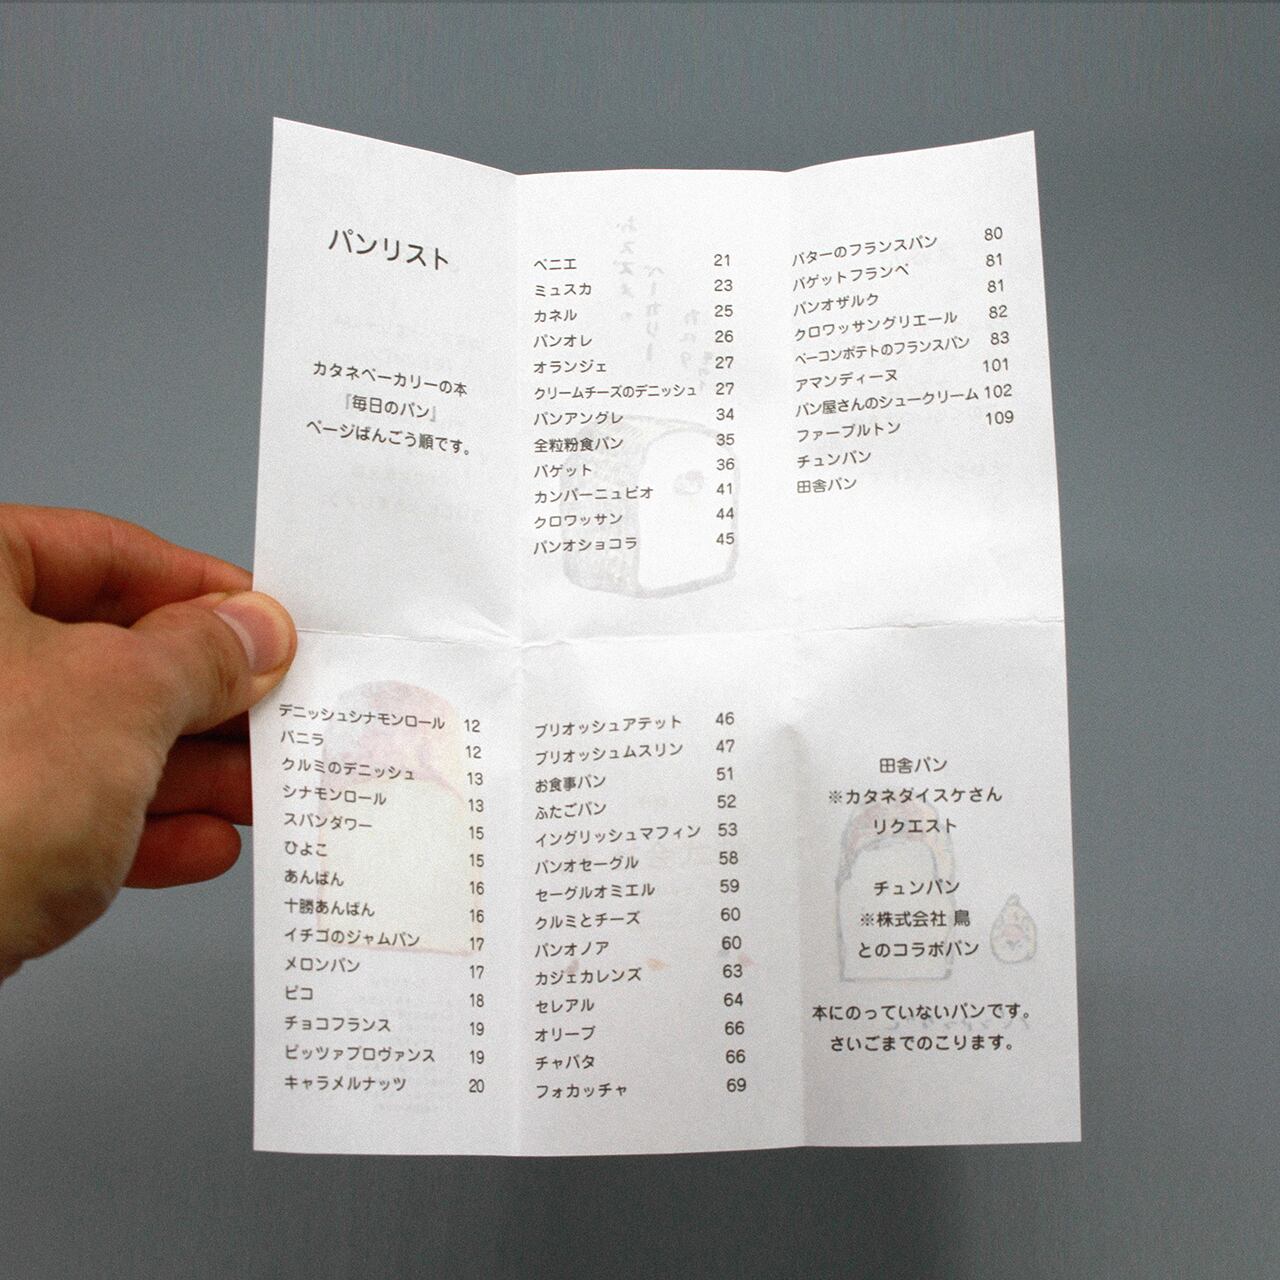 パンリスト
カタネベーカリーの本
『毎日のパン』
ページばんごう順です。
デニッシュシナモンロール 12
バニラ 12
クルミのデニッシュ 13
シナモンロール 13
スパンダワー 15
ひよこ 15
あんぱん 16
十勝あんぱん 16
イチゴのジャムパン 17
メロンパン 17
ピコ 18
チョコフランス 19
ピッツァプロヴァンス 19
キャラメルナッツ 20
ベニエ 21
ミュスカ 23
カネル 25
パンオレ 26
オランジェ 27
クリームチーズのデニッシュ 27
パンアングレ 34
全粒粉食パン 35
バゲット 36
カンパーニュビオ 41
クロワッサン 44
パンオショコラ 45
ブリオッシュアテット 46
ブリオッシュムスリン 47
お食事パン 51
ふたごパン 52
イングリッシュマフィン 53
パンオセーグル 58
セーグルオミエル 59
クルミとチーズ 60
パンオノア 60
カジェカレンズ 63
セレアル 64
オリーブ 66
チャバタ 66
フォカッチャ 69
バターのフランスパン 80
バゲットフランベ 81
パンオザルク 81
クロワッサングリエール 82
ベーコンポテトのフランスパン 83
アマンディーヌ 101
パン屋さんのシュークリーム 102
ファーブルトン 109
チュンパン
田舎パン
田舎パン
※カタネダイスケさん
リクエスト
チュンパン
※株式会社 鳥
とのコラボパン
本にのっていないパンです。
さいごまでのこります。